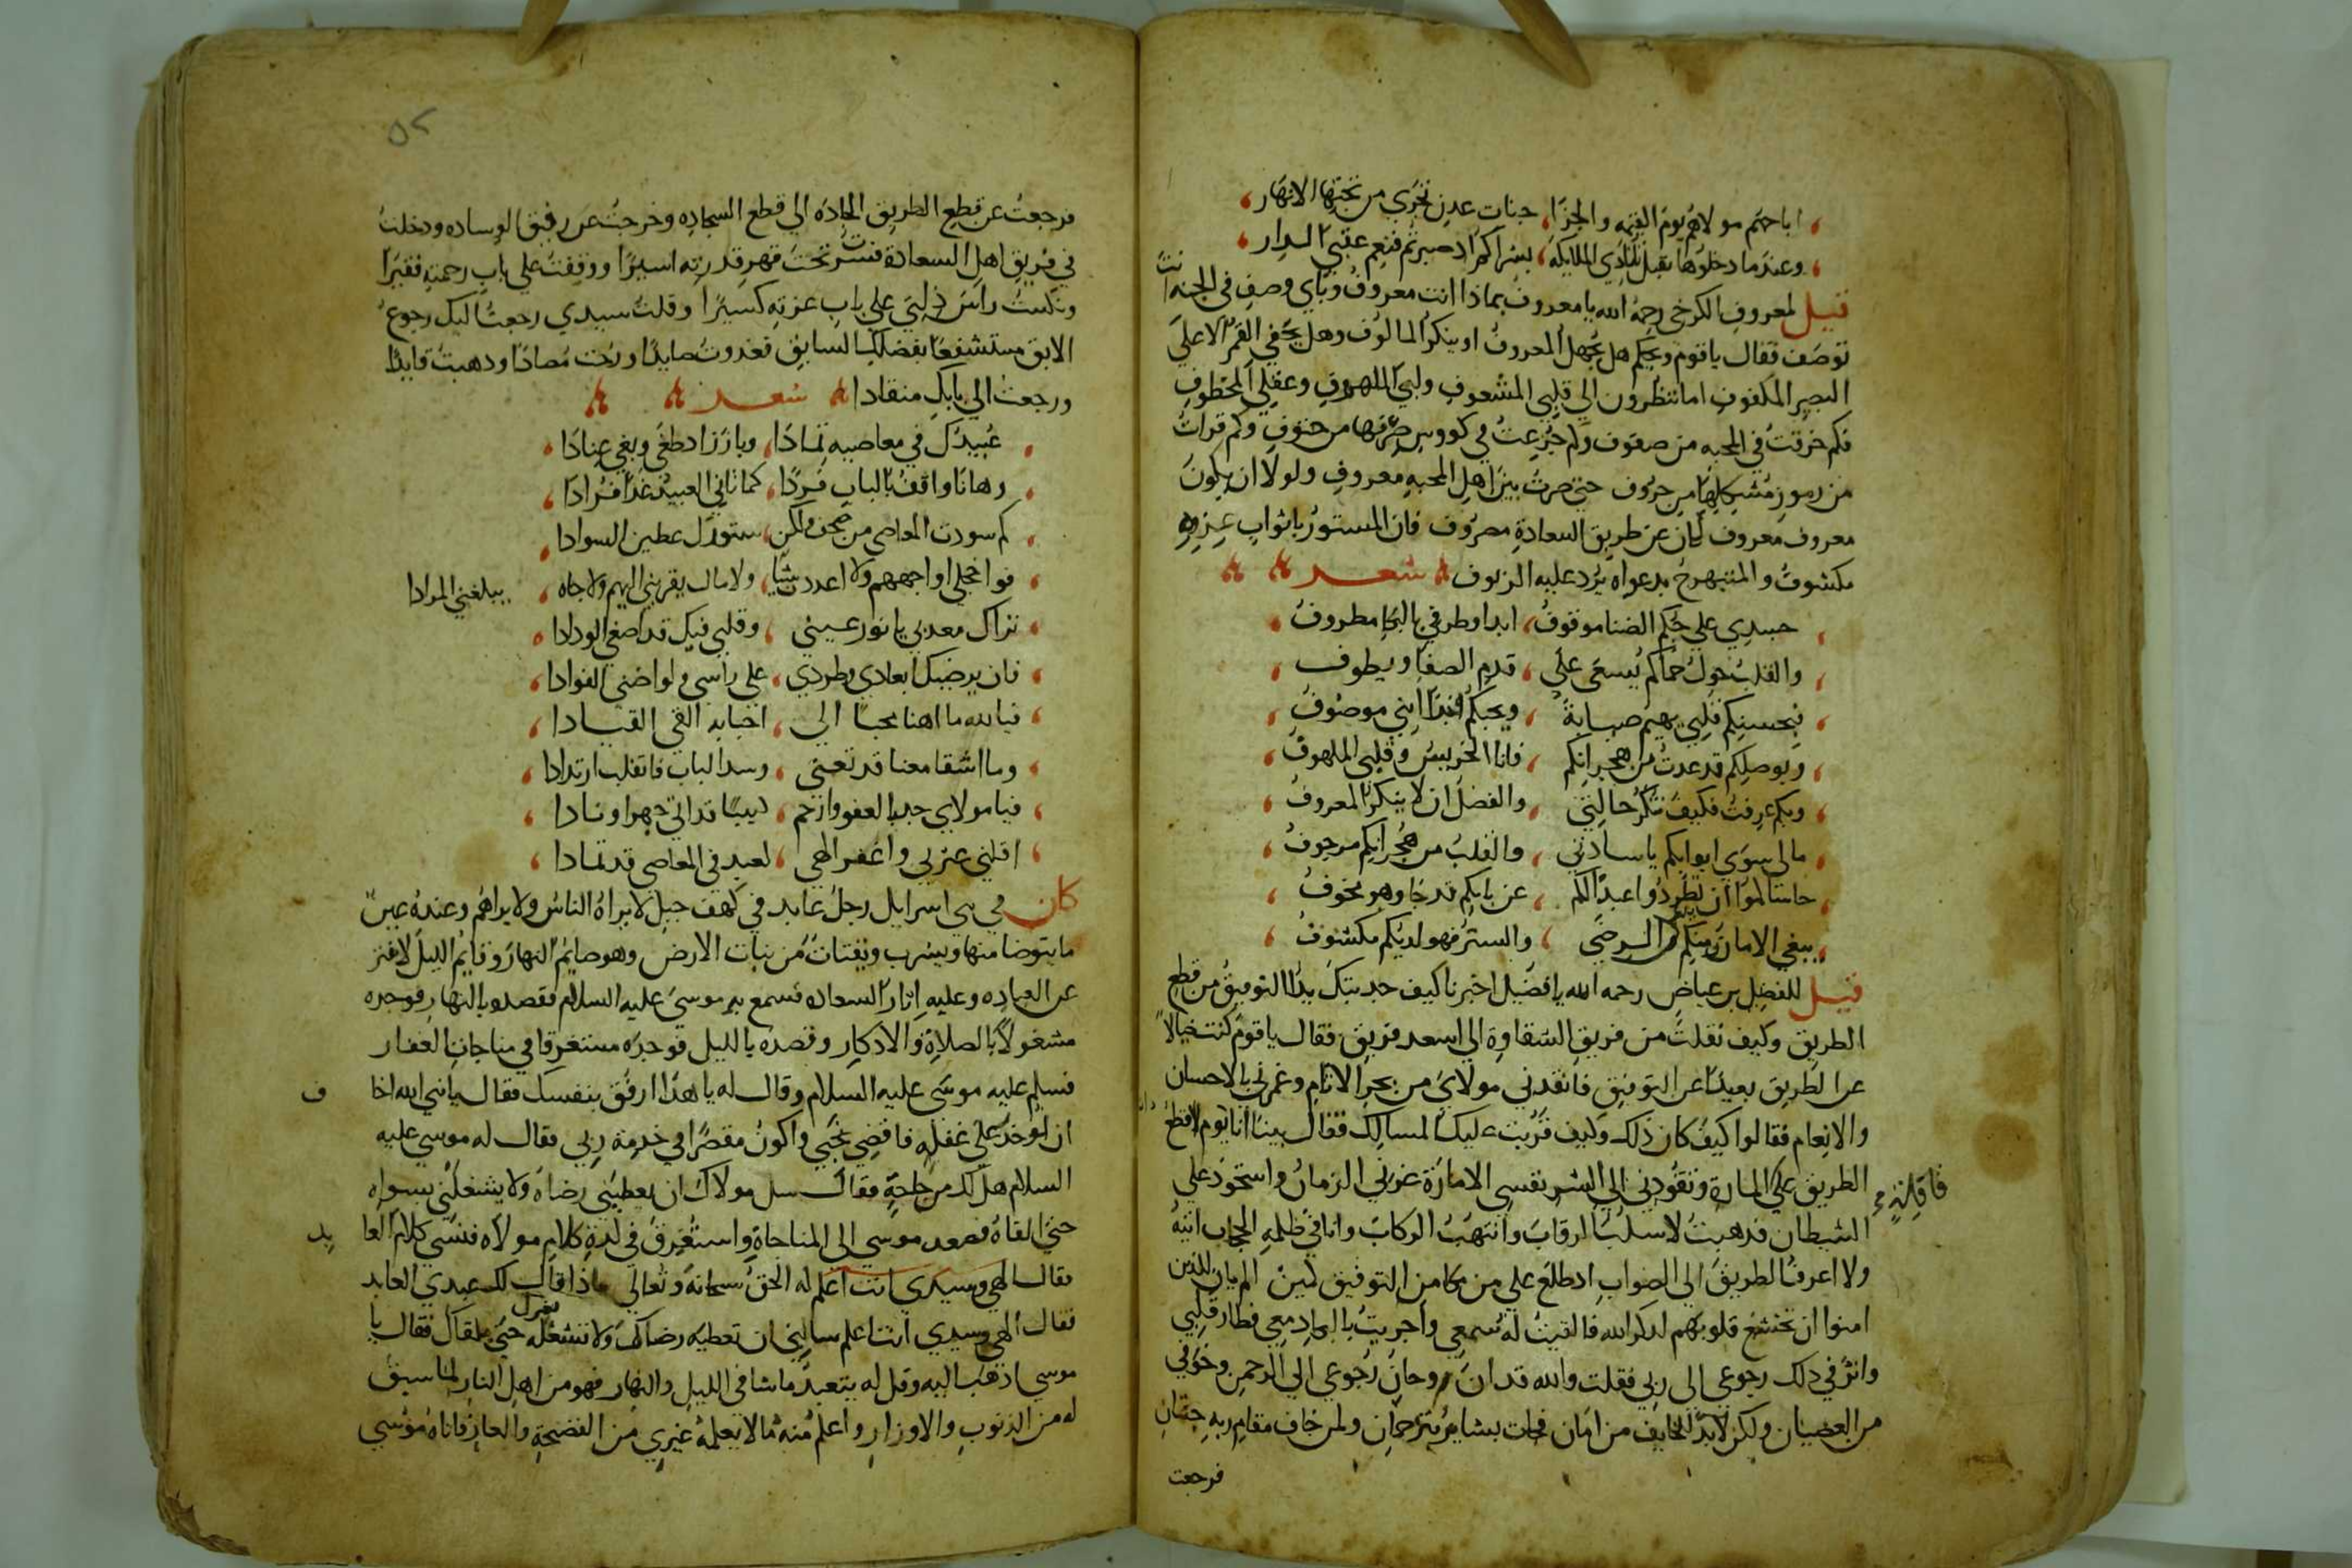 اباحهم مولاهم يوم القيمه والجزا، جنات عدن تجري من تحتها الانهار،
وعندما دخلوها بقبل تنادي الملايكه، بشراكم اذ صبرتم فنعم عقبى الدار،
قيل لمعروف الكرخي رحمه الله يا معروف بماذا انت معروف وباي وصف في الجنه انت
توصف فقال يا قوم ويحكم هل يجهل المعروف او ينكر المالوف وهل يخفي القمر الا على
البصير المكفوف اما تنظرون الي قلبي المشعوف ولبي الملهوف وعقلي المخطوف
فكم خرقت في المحبه من صفوف وكم جرعت في كووس صرفها من حتوف وكم قرات
من رموز مشكلها من حروف حتى صرت بين اهل المحبه معروف ولولا ان يكون
معروف معروف لكان عن طريق السعادة مصروف فان المستور باثواب غيره
مكشوف والمتبهرج بدعواه يرد عليه الزيوف شعر
جسدي علي حبكم الضنا موقوف، ابدا وطرفي بالبكا مطروف
والقلب حول حماكم يسعى على، قدم الصفا ويطوف
فبحسنكم قلبي يهيم صبابة، وبحبكم ابدا انني موصوف
وبوصلكم قد عدت من هجرانكم، فانا الحزين وقلبي الملهوف
وبكم عرفت فكيف تنكر حالتي، والفضل ان لا ينكر المعروف
مالي سوي ابوابكم يا سادتي، والقلب من هجرانكم مرجوف
حاشاكموا ان تطردوا عبدا لكم، عن بابكم قد جا وهو مخوف
يبغي الامان منكم الرضى، والستر فهو لديكم مكشوف
قيل للفضيل بن عياض رحمه الله يا فضيل اخبرنا كيف جذبتك يد التوفيق من قطع
الطريق وكيف نقلت من فريق الشقاوة الي اسعد فريق فقال يا قوم كنت ضالا
عن الطريق بعيدا عن التوفيق فانقدني مولاي من بحر الاثام وغمرني بالاحسان
والانعام فقالوا كيف كان ذلك وكيف قربت عليك المسالك فقال بينا انا يوم لاقطع
الطريق على المارة وتقودني الي الشر نفسي الامارة غرني الزمان واستحوذ علي
الشيطان فذهبت لاسلب الرقاب وانتهب الركاب وانا في ظلمه الحجاب اتيه
ولا اعرف الطريق الي الصواب اذ طلع علي من مكامن التوفيق كمين الم يان للذين
امنوا ان تخشع قلوبهم لذكر الله فالقيت له سمعي واجريت بالبكا دمعي فطار قلبي
واثر في ذلك رجوعي الى ربي فقلت والله قد ان وحان رجوعي الي الرحمن وخوفي
من العصيان ولكن لابد للخايف من امان فجات بشاير ترجمان ولمن خاف مقام ربه جنتان
فرجعت
فرجعت عن قطع الطريق الجاده الي قطع السجاده وخرجت عن رفيق الوساده ودخلت
في فريق اهل السعادة فسرت تحت قهر قدرته اسيرا ووقفت علي باب رحمته فقيرا
ونكست راس ذلتي على باب عزته كسيرا وقلت سيدي رجعت اليك رجوع
الابق مستشفعا بفضلك السابق فغدوت صايدا ورحت مصادا وذهبت قايدا
ورجعت الي بابك منقادا شعر
عبيدك في معاصيه تمادا، وبارز اذ طغى وبغي عنادا
وهانا واقف بالباب فردا، كما تاتي العبيد غدا فرادا،
كم سودت المعاصي من صحف ولكن، ستورك غطين السوادا
فواخجلي اواجههم ولا اعددت شيا، ولا مال يقربني اليهم ولا جاه، يبلغني المرادا
تراك معذبي يا نور عيني، وقلبي فيك قد اصفي الودادا
فان يرضيك ابعادي وطردي، على راسي ولو اضنى الفوادا،
فيا لله ما اهنا محبا الي، احبابه القي القيادا،
وما اشقا معنا قد تعنى، وسد الباب فانقلب ارتدادا،
فيا مولاي جد بالعفو وارحم، كييبا قد اتي جهرا ونادا،
اقلني عثرتي واغفر الهي، لعبد في المعاصي قد تمادا،
كان في بني اسرايل رجل عابد في كهف جبل لا يراه الناس ولا يراهم وعنده عين
ما يتوضا منها ويشرب ويقتات من نبات الارض وهو صايم النهار وقايم الليل لا يفتر
عن العباده وعليه اثار السعاده فسمع به موسى عليه السلام فقصده بالنهار فوجده
مشغولا بالصلاة والاذكار وقصده بالليل فوجده مستغرقا في مناجات الغفار
فسلم عليه موسى عليه السلام وقال له يا هذا ارفق بنفسك فقال يا نبي الله اخاف
ان اوخذ علي غفله فاقضي نحبي واكون مقصرا في خدمة ربي فقال له موسي عليه
السلام هل لك من حاجة فقال سل مولاك ان يعطيني رضاه ولا يشغلني بسواه
حتى القاه فصعد موسي الى المناجاة واستغرق في لذة كلام مولاه فنسي كلام العابد
فقال الهي وسيدي انت اعلم له الحق سبحانه وتعالي ماذا قال لك عبدي العابد
فقال الهي وسيدي انت اعلم سالني ان تعطيه رضاك ولا تشغله بغيرك حتى يلقاك فقال يا
موسي اذهب اليه وقل له يتعبد ما شا في الليل والنهار فهو من اهل النار لما سبق
له من الذنوب والاوزار واعلم منه ما لا يعلمه غيري من الفضيحة والعار فاتاه موسي